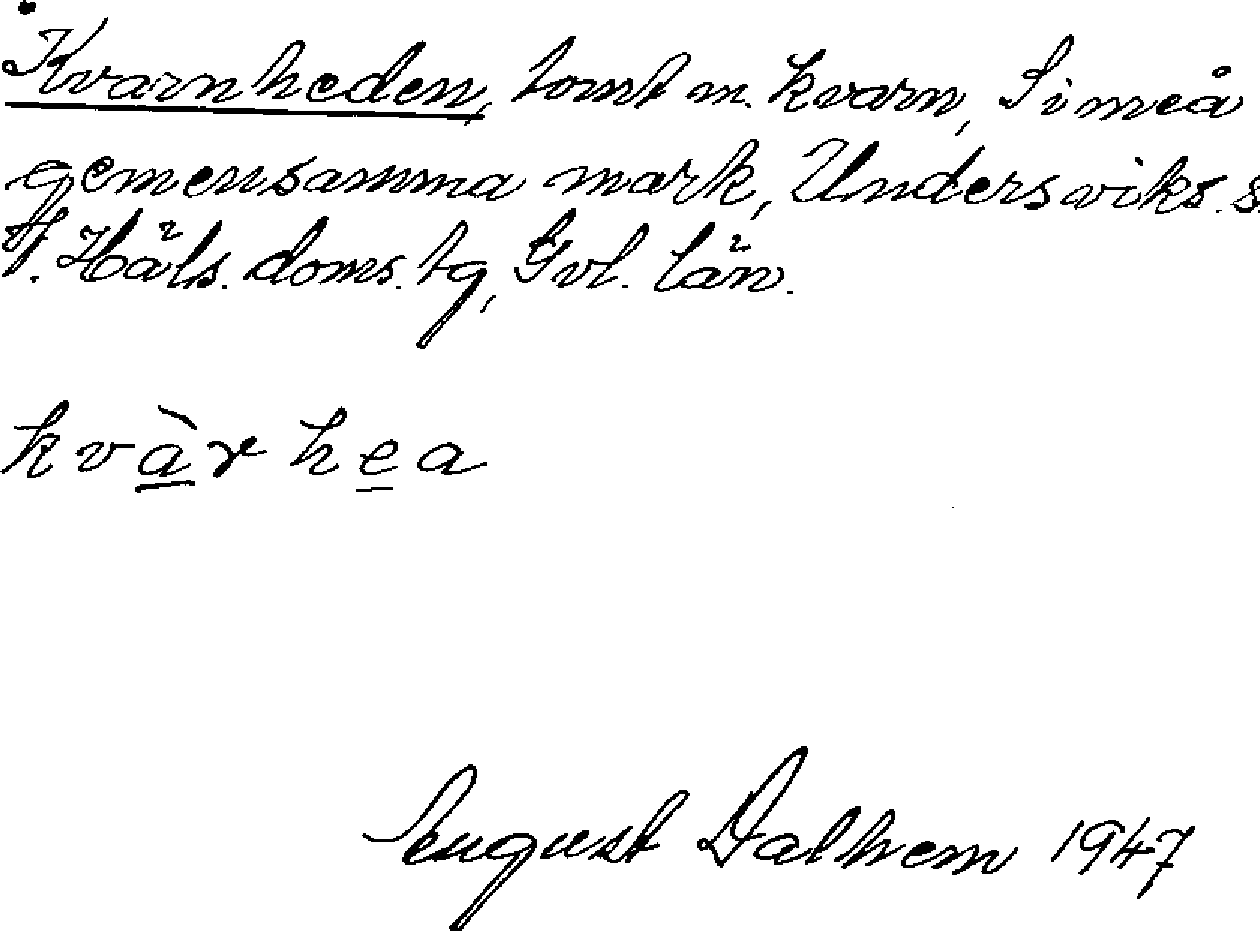 Kvarnheden, tomt m. kvarn, Simeå
gemensamma mark, Undersviks. s
V. Häls. doms. tg, Gvl. län.
kvàrhea
August Dalhem 1947